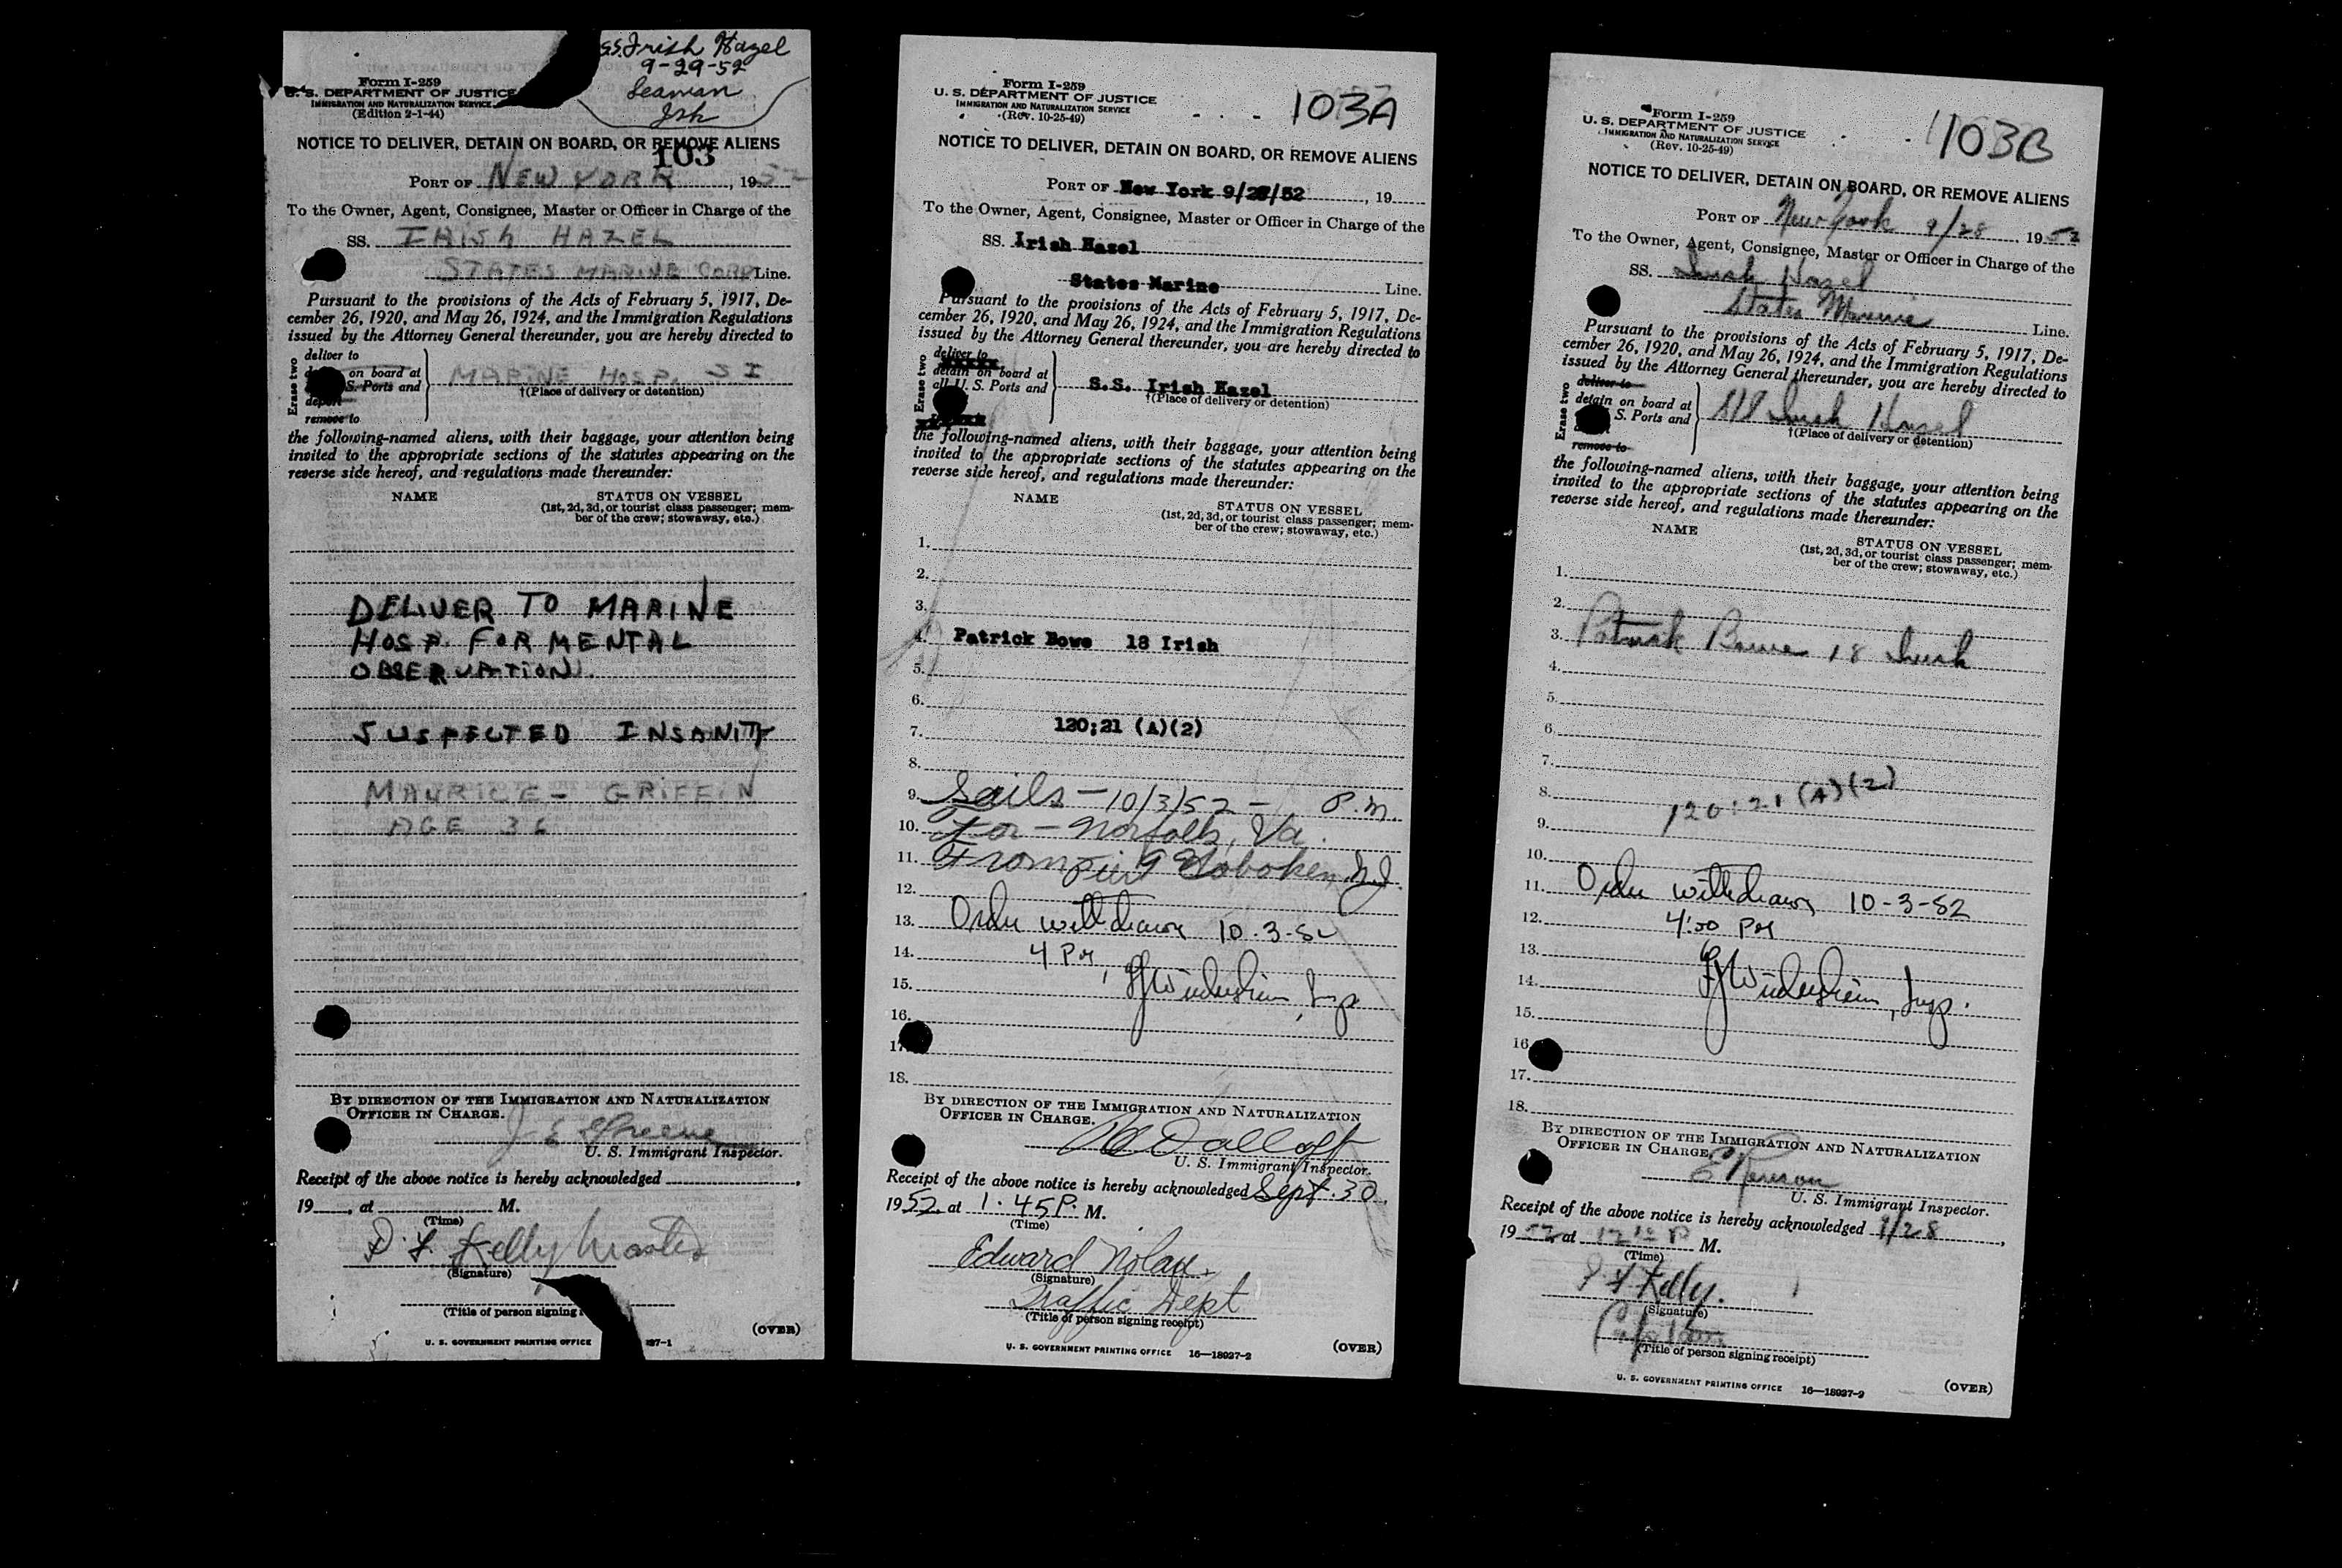 SS. Irish Hazel
9-29-52
Seaman
Form I-259
U. S. DEPARTMENT OF JUSTICE
IMMIGRATION AND NATURALIZATION SERVICE
(Edition 2-1-44)
NOTICE TO DELIVER, DETAIN ON BOARD, OR REMOVE ALIENS
103
PORT OF NEW YORK, 1952
To the Owner, Agent, Consignee, Master or Officer in Charge of the
SS. IRISH HAZEL
STATES MARINE CORP Line.
Pursuant to the provisions of the Acts of February 5, 1917, De-
cember 26, 1920, and May 26, 1924, and the Immigration Regulations
issued by the Attorney General thereunder, you are hereby directed to
Erase two
deliver to
on board at
S. Ports and
remove to
MARINE HOSP. S I
†(Place of delivery or detention)
the following-named aliens, with their baggage, your attention being
invited to the appropriate sections of the statutes appearing on the
reverse side hereof, and regulations made thereunder:
NAME STATUS ON VESSEL
(1st, 2d, 3d, or tourist class passenger; mem-
ber of the crew; stowaway, etc.)
DELIVER TO MARINE
HOSP. FOR MENTAL
OBSERVATION.
SUSPECTED INSANITY
MAURICE - GRIFFIN
AGE 36
BY DIRECTION OF THE IMMIGRATION AND NATURALIZATION
OFFICER IN CHARGE.
J E Greene
U. S. Immigrant Inspector.
Receipt of the above notice is hereby acknowledged
19 , at M.
(Time)
D. F. Kelly Master
(Signature)
(Title of person signing
U. S. GOVERNMENT PRINTING OFFICE 27-1
(OVER)
Form I-259
U. S. DEPARTMENT OF JUSTICE
IMMIGRATION AND NATURALIZATION SERVICE
(Rev. 10-25-49)
103A
NOTICE TO DELIVER, DETAIN ON BOARD, OR REMOVE ALIENS
PORT OF New York 9/28/52, 19
To the Owner, Agent, Consignee, Master or Officer in Charge of the
SS. Irish Hazel
States Marine Line.
Pursuant to the provisions of the Acts of February 5, 1917, De-
cember 26, 1920, and May 26, 1924, and the Immigration Regulations
issued by the Attorney General thereunder, you are hereby directed to
Erase two
deliver to
detain on board at
all U. S. Ports and
S.S. Irish Hazel
†(Place of delivery or detention)
the following-named aliens, with their baggage, your attention being
invited to the appropriate sections of the statutes appearing on the
reverse side hereof, and regulations made thereunder:
NAME STATUS ON VESSEL
(1st, 2d, 3d, or tourist class passenger; mem-
ber of the crew; stowaway, etc.)
1.
2.
3.
4. Patrick Bowe 18 Irish
5.
6.
7. 120;21 (A)(2)
8.
9. Sails - 10/3/52 - P.M.
10. For - Norfolk, Va.
11. From Pier 9 Hoboken, N.J.
12.
13. Order withdrawn 10-3-52
14. 4 PM
15. Insp
16.
17.
18.
BY DIRECTION OF THE IMMIGRATION AND NATURALIZATION
OFFICER IN CHARGE.
U. S. Immigrant Inspector.
Receipt of the above notice is hereby acknowledged Sept. 30,
1952, at 1.45 P. M.
(Time)
Edward Nolan
(Signature)
Traffic Dept
(Title of person signing receipt)
U. S. GOVERNMENT PRINTING OFFICE 16—18927-2
(OVER)
Form I-259
U. S. DEPARTMENT OF JUSTICE
IMMIGRATION AND NATURALIZATION SERVICE
(Rev. 10-25-49)
103B
NOTICE TO DELIVER, DETAIN ON BOARD, OR REMOVE ALIENS
PORT OF New York 9/28 1952
To the Owner, Agent, Consignee, Master or Officer in Charge of the
SS. Irish Hazel
States Marine Line.
Pursuant to the provisions of the Acts of February 5, 1917, De-
cember 26, 1920, and May 26, 1924, and the Immigration Regulations
issued by the Attorney General thereunder, you are hereby directed to
Erase two
deliver to
detain on board at
S. Ports and
remove to
SS Irish Hazel
†(Place of delivery or detention)
the following-named aliens, with their baggage, your attention being
invited to the appropriate sections of the statutes appearing on the
reverse side hereof, and regulations made thereunder:
NAME STATUS ON VESSEL
(1st, 2d, 3d, or tourist class passenger; mem-
ber of the crew; stowaway, etc.)
1.
2.
3. Patrick Bowe 18 Irish
4.
5.
6.
7.
8. 120:21 (A)(2)
9.
10.
11. Order withdrawn 10-3-52
12. 4:00 PM
13.
14. Insp.
15.
16.
17.
18.
BY DIRECTION OF THE IMMIGRATION AND NATURALIZATION
OFFICER IN CHARGE.
U. S. Immigrant Inspector.
Receipt of the above notice is hereby acknowledged 9/28,
1952 at P M.
(Time)
Kelly.
(Signature)
Captain
(Title of person signing receipt)
U. S. GOVERNMENT PRINTING OFFICE 16—18927-2
(OVER)